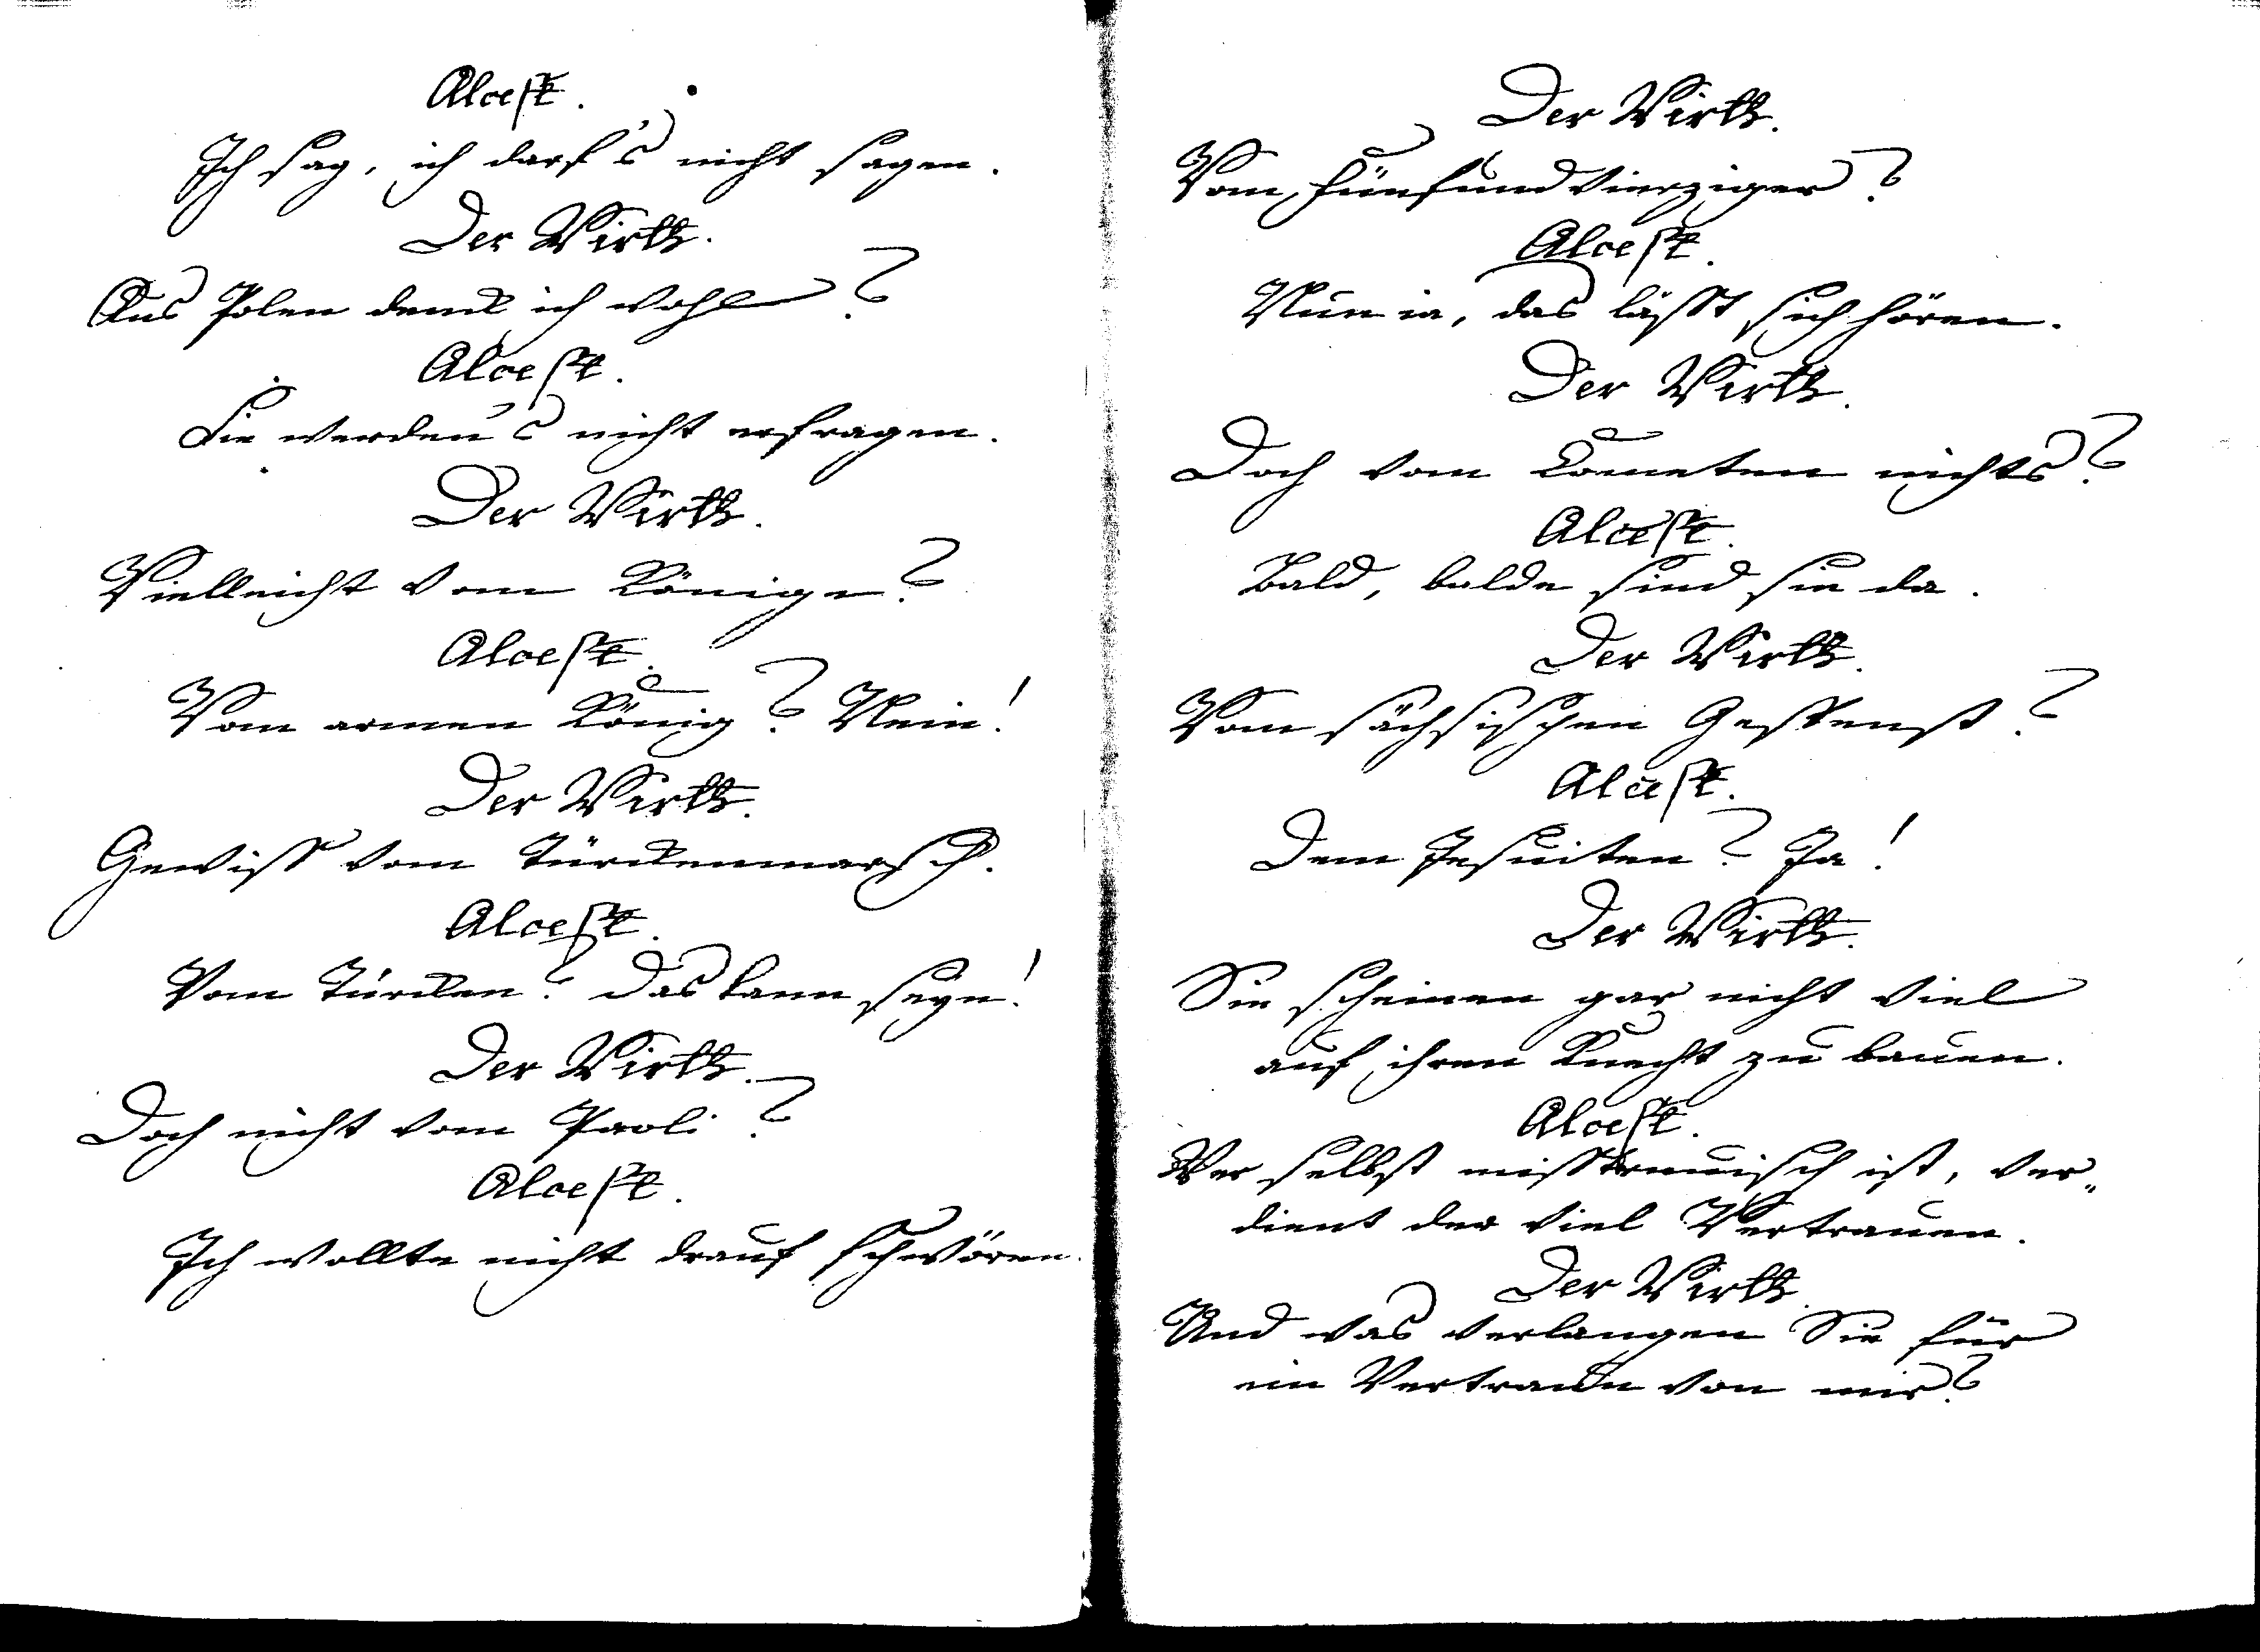 Alcest.
Ich sag, ich darf's nicht sagen.
Der Wirth.
Aus Polen denck ich wohl?
Alcest.
Sie werden's nicht erfragen.
Der Wirth.
Vielleicht vom Könige?
Alcest.
Vom armen König? Nein!
Der Wirth.
Gewiss vom Türckenmarsch.
Alcest.
Vom Türcken? Das kann seyn!
Der Wirth.
Doch nicht vom Paoli?
Alcest.
Ich wollte nicht drauf schwören.
Der Wirth.
Vom fünfundvierziger?
Alcest.
Nun ia, das lässt sich hören.
Der Wirth.
Doch vom Cometen nichts?
Alcest.
Bald, balde sind sie da.
Der Wirth.
Vom sächsischen Gespenst?
Alcest.
Dem Jesuiten? Ja!
Der Wirth.
Sie scheinen gar nicht viel
auf ihren Knecht zu bauen.
Alcest.
Wer selbst misstrauisch ist, ver„
dient der viel Vertrauen.
Der Wirth.
Und was verlangen Sie für
ein Vertraun von mir?